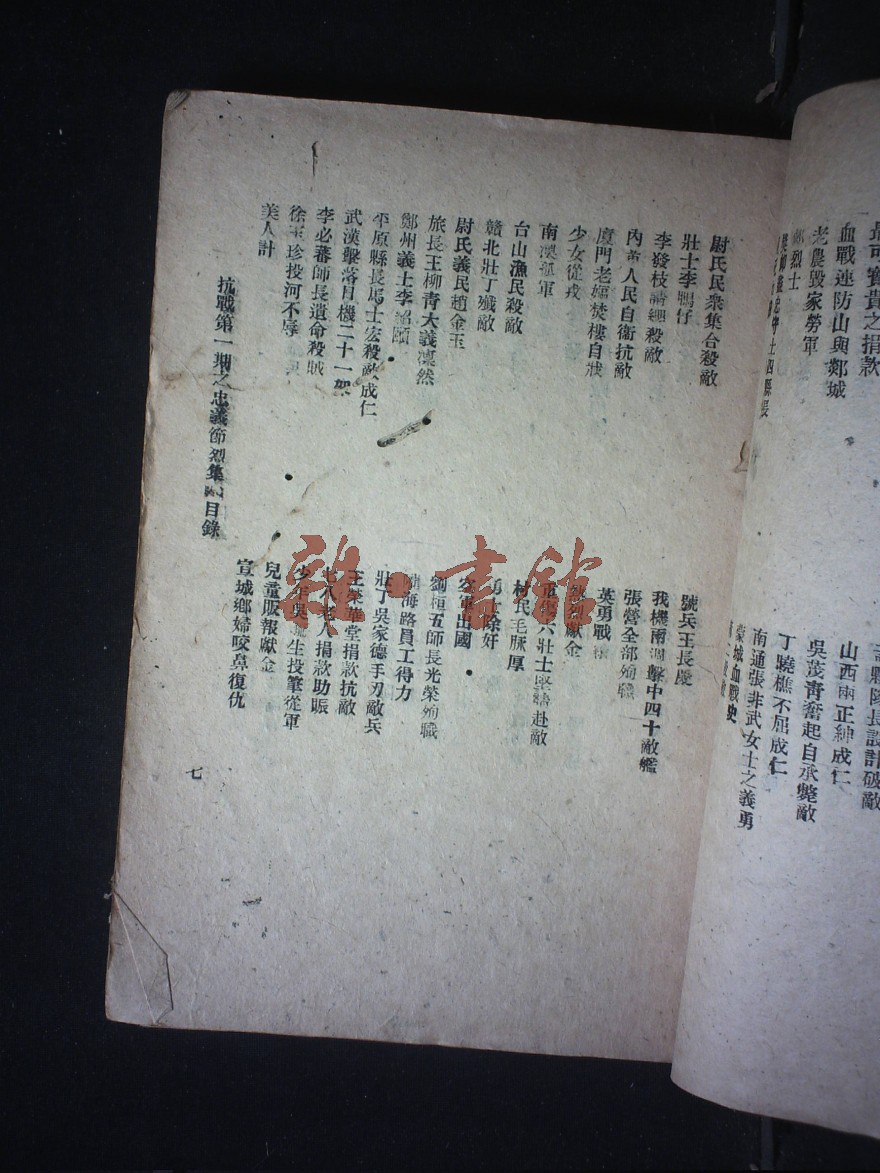 最可寶貴之捐款
血戰連防山與郯城
老農毀家勞軍
烈士
縣長
長設計破敵
山西兩正紳成仁
吳茂青奮起自承斃敵
丁曉樵不屈成仁
南通張非武女士之義勇
蒙城血戰史
尉氏民衆集合殺敵
壯士李鴨仔
李發枝請纓殺敵
內黃人民自衞抗敵
廈門老婦焚樓自戕
少女從戎
南澳孤軍
台山漁民殺敵
贛北壯丁殲敵
尉氏義民趙金玉
旅長王柳青大義凜然
鄭州義士李韶頤
平原縣長馬士宏殺敵成仁
武漢擊落日機二十一架
李必蕃師長遺命殺賊
徐玉珍投河不辱
美人計
號兵王長慶
我機兩週擊中四十敵艦
張營全部殉職
英勇戰
熱烈獻金
重傷六壯士堅請赴敵
村民毛脉厚
勇女除奸
空軍出國
劉桓五師長光榮殉職
隴海路員工得力
壯丁吳家德手刃敵兵
王榮華堂捐款抗敵
七八老人捐款助賑
少年吳生投筆從軍
兒童販報獻金
宣城鄉婦咬鼻復仇
抗戰第一期之忠義節烈集 目錄
七
雜·書館